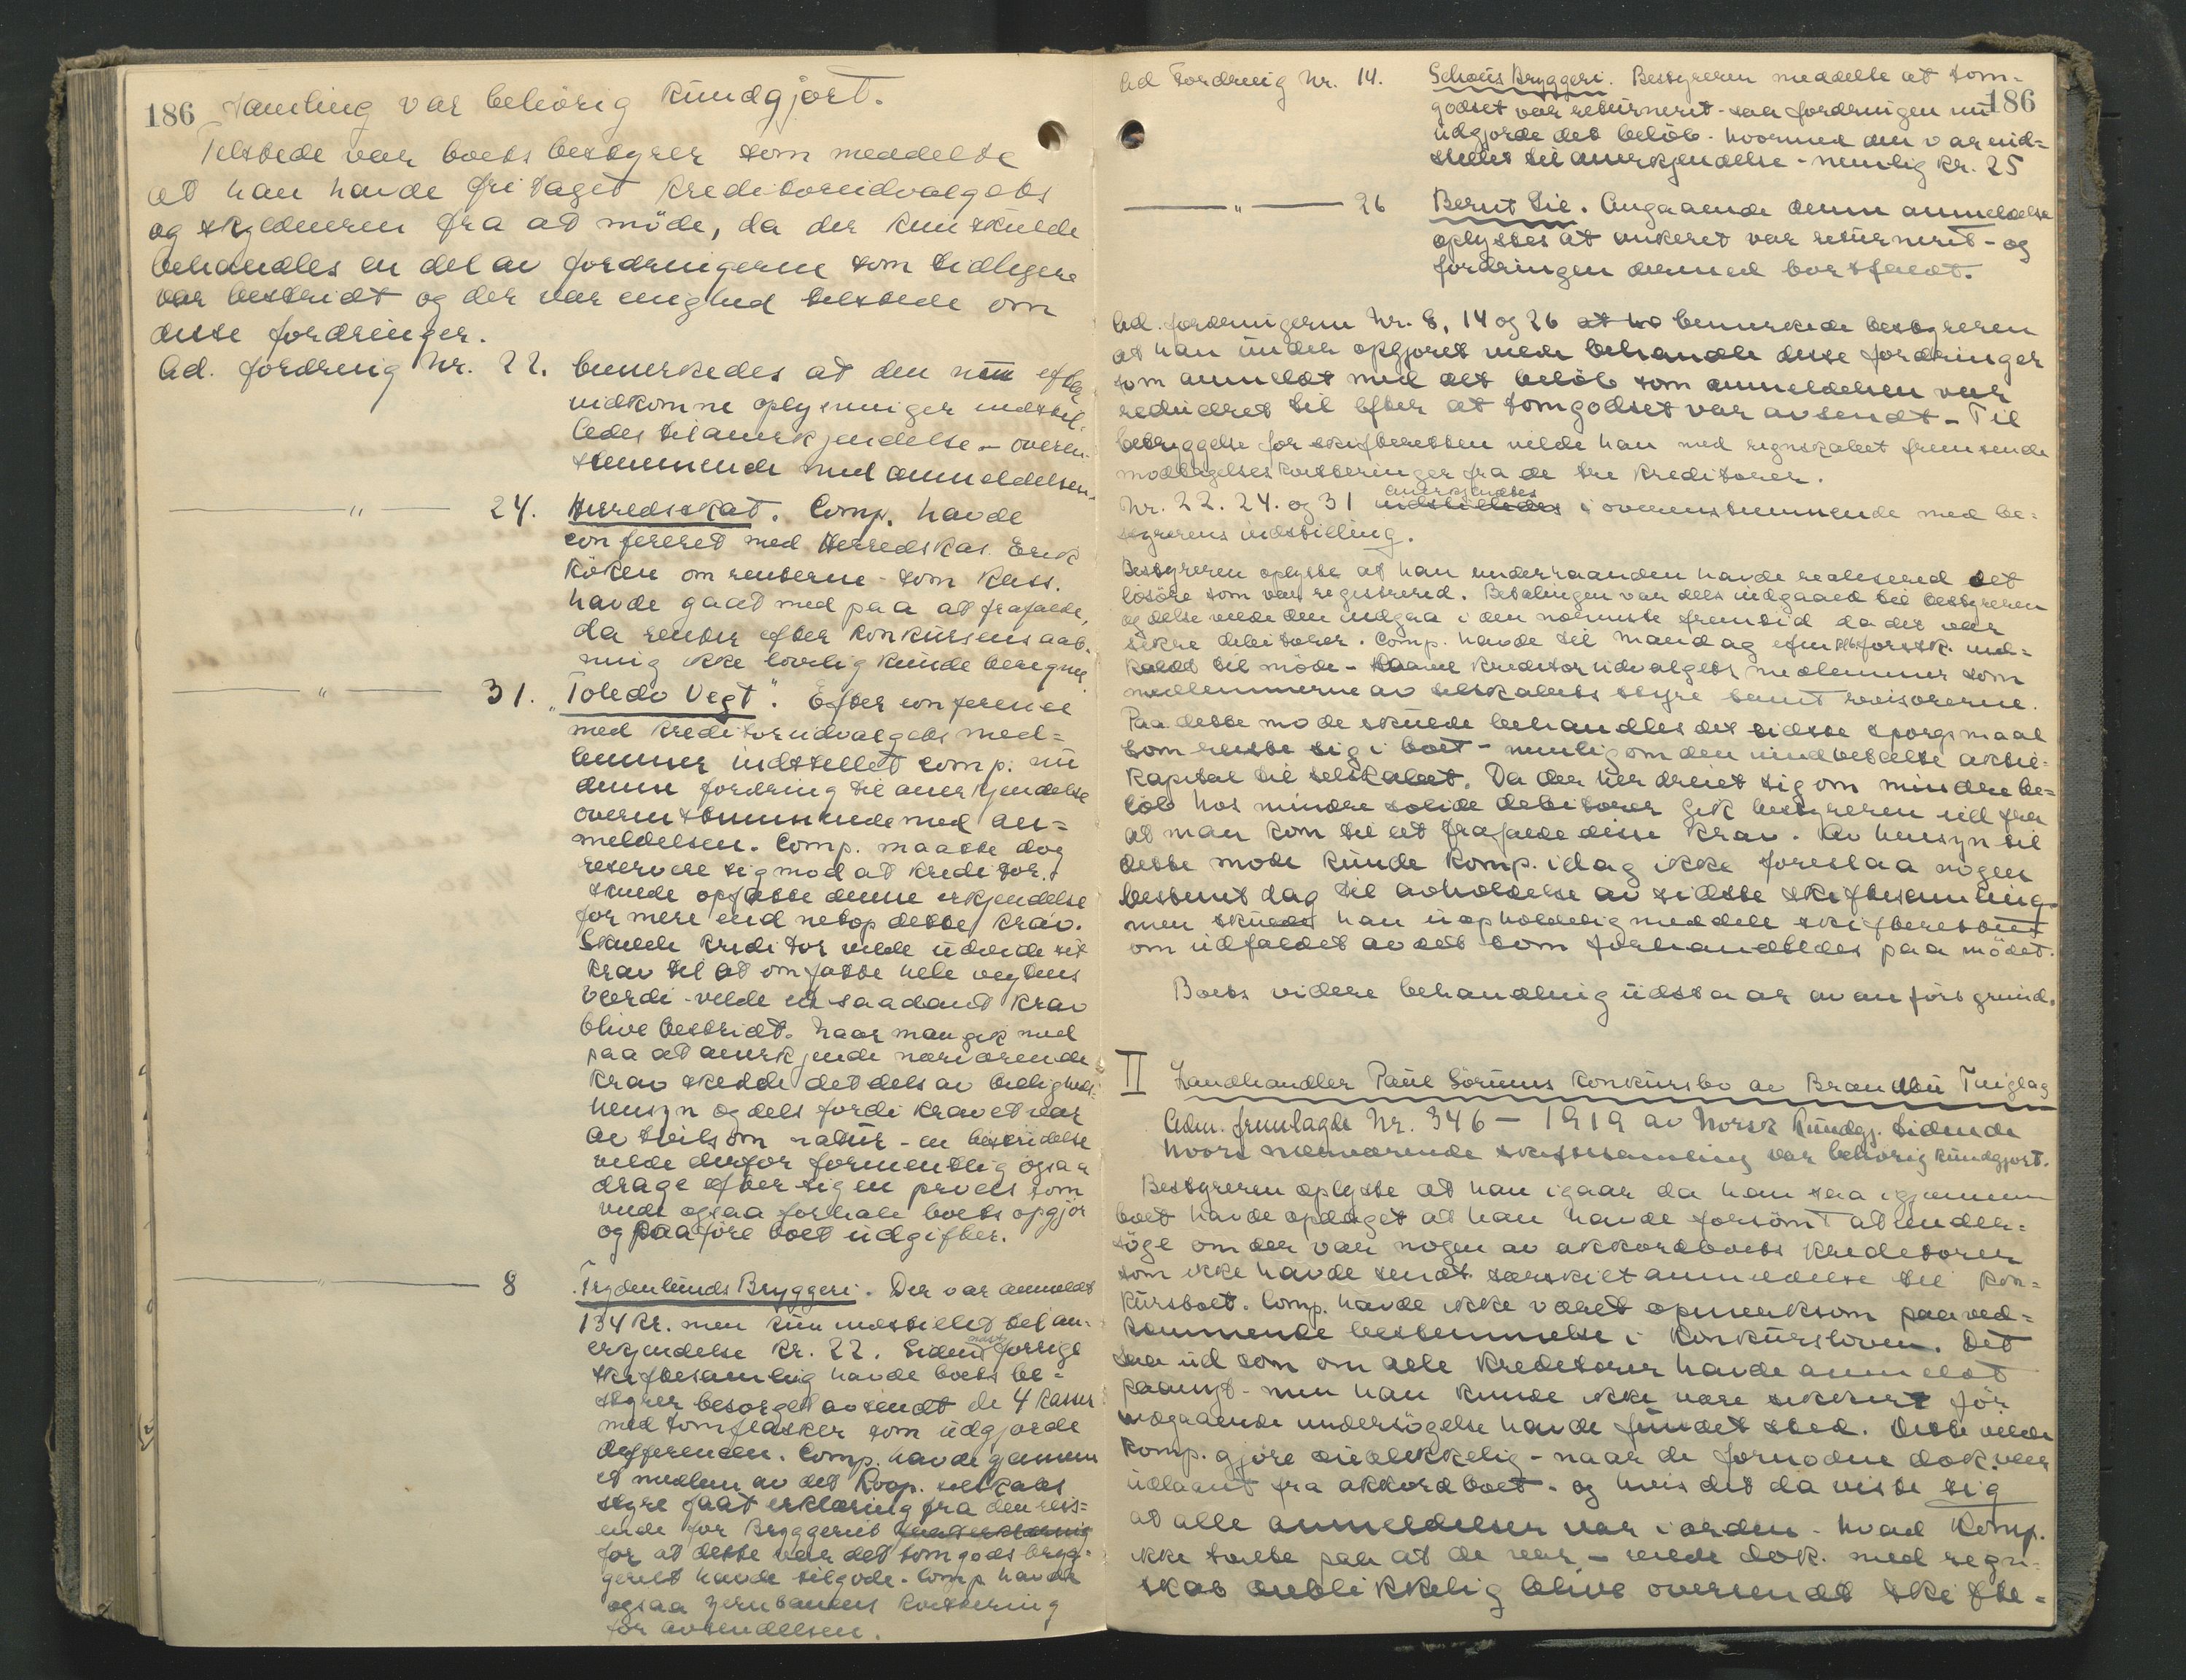 186 samling var behörig kundgjort.
Tilstede var boets bestyrer som meddelte
at han havde fritaget kreditorudvalgets
og skyldneren fra at möde, da der kun skulde
behandles en del av fordringerne som tidligere
var bestridt og der var enighed tilstede om
disse fordringer.
Ad. fordring Nr. 22. bemerkedes at den nu efter
indkomne oplysninger indstil-
ledes til anerkjendelse - overen-
stemmende med anmeldelsen.
— " — 24. Herredsskat. Comp. havde
confereret med Herredskas. Erik
Köken om renterne - som kass.
havde gaat med paa at frafalde,
da renter efter konkursens aab-
ning ikke lovlig kunde beregnes
— " — 31. "Toledo Vegt". Efter conference
med kreditorudvalgets med=
lemmer indstillet comp. nu
denne fordring til anerkjendelse
overenstemmende med an=
meldelsen. Comp. maatte dog
reservere sig mod at kreditor
skulde opfatte denne erkjendelse
for mere end netop dette krav.
Skulde kreditor ville utvide sit
krav til at omfatte hele vegtens
værdi - vilde et saadant krav
blive bestridt. Naar man gik med
paa at anerkjende nærværende
krav skedde det dels av billigheds-
hensyn og dels fordi kravet var
av tvilsom natur - en bestridelse
vilde derfor formentlig ogsaa
drage efter sig en proces som
vilde ogsaa forhale boets opgjör
og paaföre boet udgifter.
— " — 8 Frydenlunds Bryggeri. Der var anmeldt
134 kr. men kun indstillet til an-
erkjendelse kr. 22. Siden forrige
skiftesamling havde boets be=
styrer besörget avsendt de 4 kasser
med tomflasker som udgjorde
differencen. Comp. havde gjennem
et medlem av det Koop. selskabs
styre faat erklæring fra den reis=
ende for Bryggeriet faat erklæring
for at dette var det tomgods bryg=
geriet havde tilgode. Comp havde
ogsaa jernbanens kvittering
for avsendelsen.
186
Ad Fordring Nr. 14. Schous Bryggeri. Bestyreren meddelte at tom=
godset var returneret - saa fordringen nu
udgjorde det belöb - hvormed den var ind=
stillet til anerkjendelse - nemlig kr. 25
— " — 26 Bernt Lie. Angaaende denne anmeldelse
oplystes at ankeret var returneret - og
fordringen dermed bortfaldt.
Ad. fordringerne Nr. 8, 14 og 26 at ha bemerkede bestyreren
at han under opgjöret vilde behandle disse fordringer
som anmeldt med det belöb som anmeldelsen var
reduceret til efter at tomgodset var avsendt - Til
betryggelse for skifteretten vilde han med regnskabet fremsende
modtagelseskvitteringer fra de tre kreditorer.
anerkjendtes
Nr. 22. 24. og 31 indstilledes i overenstemmende med be=
styrerens indstilling.
Bestyreren oplyste at han underhaanden havde realisered det
lösöre som var registrered. Betalingen var dels indgaaed til bestyreren
og delse vilde den indgaa i den nærmeste fremtid da det var
sikre debitorer. Comp. havde til mandag ind=
kaldt til möde - kreditorudvalgets medlemmer som
medlemmerne av selskabets styre samt revisorerne.
Paa dette möde skulde behandles det sidste spörgsmaal
som reiste sig i boet - nemlig om den uindbetalte aktie-
kapital til selskabet. Da det her dreiet sig om mindre be=
löb hos mindre solide debitorer gik bestyreren ud fra
at man kom til at frafalde disse krav. Av hensyn til
dette möde kunde Komp. idag ikke foreslaa nogen
bestemt dag til avholdelse av sidste skiftesamling
men skulde han uopholdelig meddele skifteretten
om udfaldet av det som forhandledes paa mödet.
Boets videre behandling udstaar av anförs grund.
II Landhandler Paul Sörums konkursbo av Brandbu Tinglag
Adm. fremlagde Nr. 346 - 1919 av Norsk Kundgj. tidende
hvori nærværende skiftesamling var behörig kundgjort.
Bestyreren oplyste at han igaar da han saa igjennem
boet havde opdaget at han havde forsömt at under=
söge om der var nogen av akkordboets kreditorer
som ikke havde sendt særskilt anmeldelse til kon=
kursboet. Comp. havde ikke været opmerksom paa ved=
kommende bestemmelse i konkursloven. Det
saa ud som om alle kreditorer havde anmeldt
paanyt - men han kunde ikke være sikker för
indgaaende undersögelse havde fundet sted. Dette vilde
Komp. gjöre öieblikkelig - naar de fornödne dok. var
udlaant fra akkordboet - og hvis det da viste sig
at alle anmeldelser var i orden - hvad Komp.
ikke tvilte paa at de var - vilde dok. med regn-
skab öieblikkelig blive oversendt skifte=